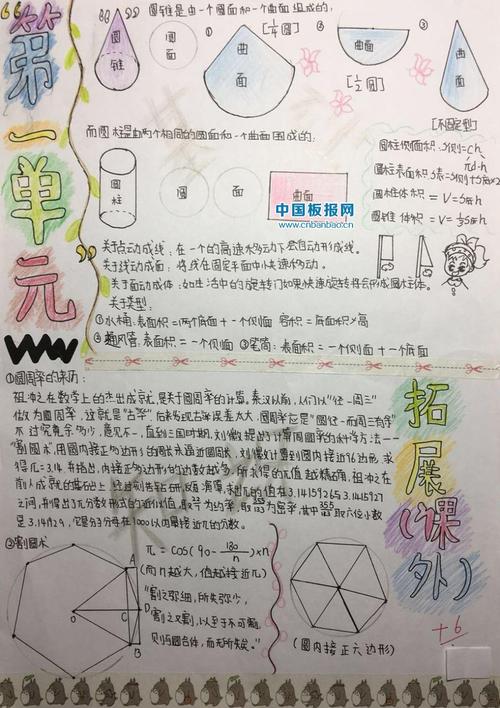 第一单元
圆锥是由一个圆面和一个曲面组成的:
圆
锥
圆
面
①
[¼圆]
曲
面
②
曲面
[½圆]
③
曲
面
[不固定型]
而圆柱是由两个相同的圆面和一个曲面围成的:
圆
柱
圆
面
曲面
圆柱侧面积:S侧=Ch
πd·h
圆柱表面积:S表=S侧+S底×2
圆柱体积 = V=S底h
圆锥体积 = V=⅓S底h
中国板报网
www.cnbanbao.cn
关于点动成线:在一个的高速水移动下会自动形成线。
关于线动成面:将线在固定平面中快速移动。
关于面动成体:如生活中的旋转门如果快速旋转将会形成圆柱体。
关于类型:
①水桶:表面积=两个底面+一个侧面 容积=底面积×高
②通风管:表面积=一个侧面 ③笔筒:表面积=一个侧面+一个底面
①圆周率的来历:
祖冲之在数学上的杰出成就,是关于圆周率的计算,秦汉以前,人们以"径一周三"
做为圆周率,这就是"古率",后来发现古率误差太大,圆周率应是"圆径一而周三有余"
不过究竟余多少,意见不一,直到三国时期,刘徽提出了计算周圆率的科学方法——
"割圆术",用圆内接正多边形的周长来逼近圆周长,刘徽计算到圆内接96边形,求
得π=3.14,并指出,内接正多边形的边数越多,所求得的π值越精确,祖冲之在
前人成就的基础上,经过刻苦钻研,反复演算,求出π的值在3.1415926与3.1415927
之间,并得出了π分数形式的近似值,取为约率,取355/113为密率,其中355/113取六位小数
是3.141929,它是分子分母在1000以内最接近π的分数。
②割圆术
A
O
C
D
B
π=cos(90-180/n)×n
(而n越大,值越接近π)
"割之弥细,所失弥少,
割之又割,以至于不可割,
则与圆合体,而无所失矣。"
(圆内接正六边形)
拓展(课外)
+6